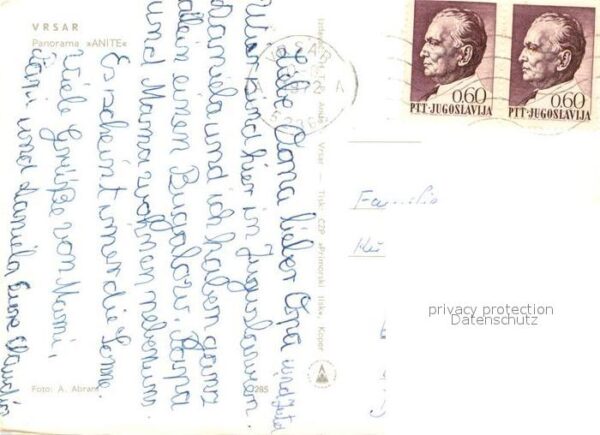 VRSAR
Panorama »ANITE«
Liebe Oma lieber Opa und
Wir sind hier in Jugoslawien
daniela und ich haben ganz
alein einen Bugalow. Papa
und Mama wohnen neben uns.
Es scheint immer die Sonne.
Viele Grüße von Mami,
Papi und daniela Eure Claudia
VRSAR
0,60
PTT-JUGOSLAVIJA
0,60
PTT-JUGOSLAVIJA
Vrsar — Tisk: ČZP »Primorski tisk«, Koper
Familie
privacy protection
Datenschutz
Foto: A. Abram